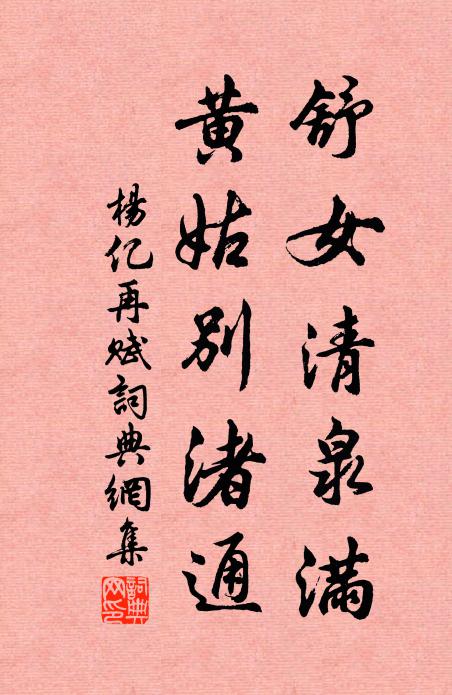 舒女清泉滿
黃姑別渚通
楊亿再賦詞典網集
詞典網印